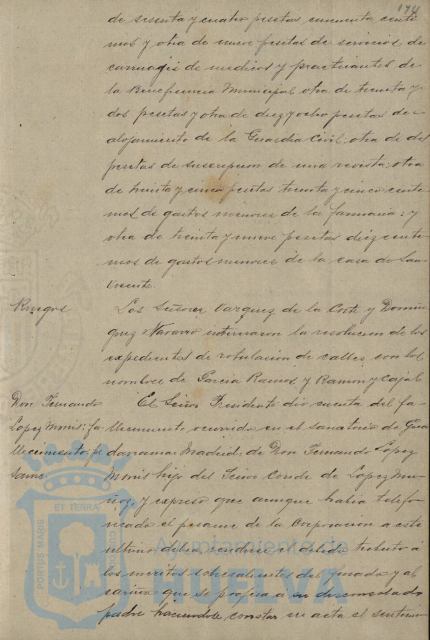 174
de sesenta y cuatro pesetas cincuenta centi-
mos y otra de nueve pesetas de servicios de
carruajes de medicos y practicantes de
la Beneficencia Municipal, otra de treinta y
dos pesetas y otra de diez y ocho pesetas de
alojamiento de la Guardia Civil; otra de
pesetas de suscripcion de una revista; otra
de treinta y cinco pesetas treinta y cinco centi-
mos de gastos menores de la farmacia; y
otra de treinta y nueve pesetas diez centi-
mos de gastos menores de la casa de San
Vicente.
Ruegos
Los Señores Vazquez de la Corte y Domin-
guez Navarro interesaron la resolucion de los
expedientes de rotulacion de calles con los
nombres de Garcia Ramos y Ramon y Cajal
Don Fernando
Lopez Muñiz: fa-
llecimiento
El Señor Presidente dió cuenta del fa-
llecimiento ocurrido en el sanatorio de Gua-
darrama: Madrid; de Don Fernando López
hijo del Señor Conde de Lopez Mu-
ñoz, y expresó que aunque habia telefo-
neado el pesame de la Corporacion a este
ultimo, debia rendirse el debido tributo á
los meritos sobresalientes del finado y al
cariño que se profesa a su desconsolado
padre haciendole constar en acta el sentimien-
PORTUS MARIS ET TERRAE CUSTODIA
Ayuntamiento de
HUELVA